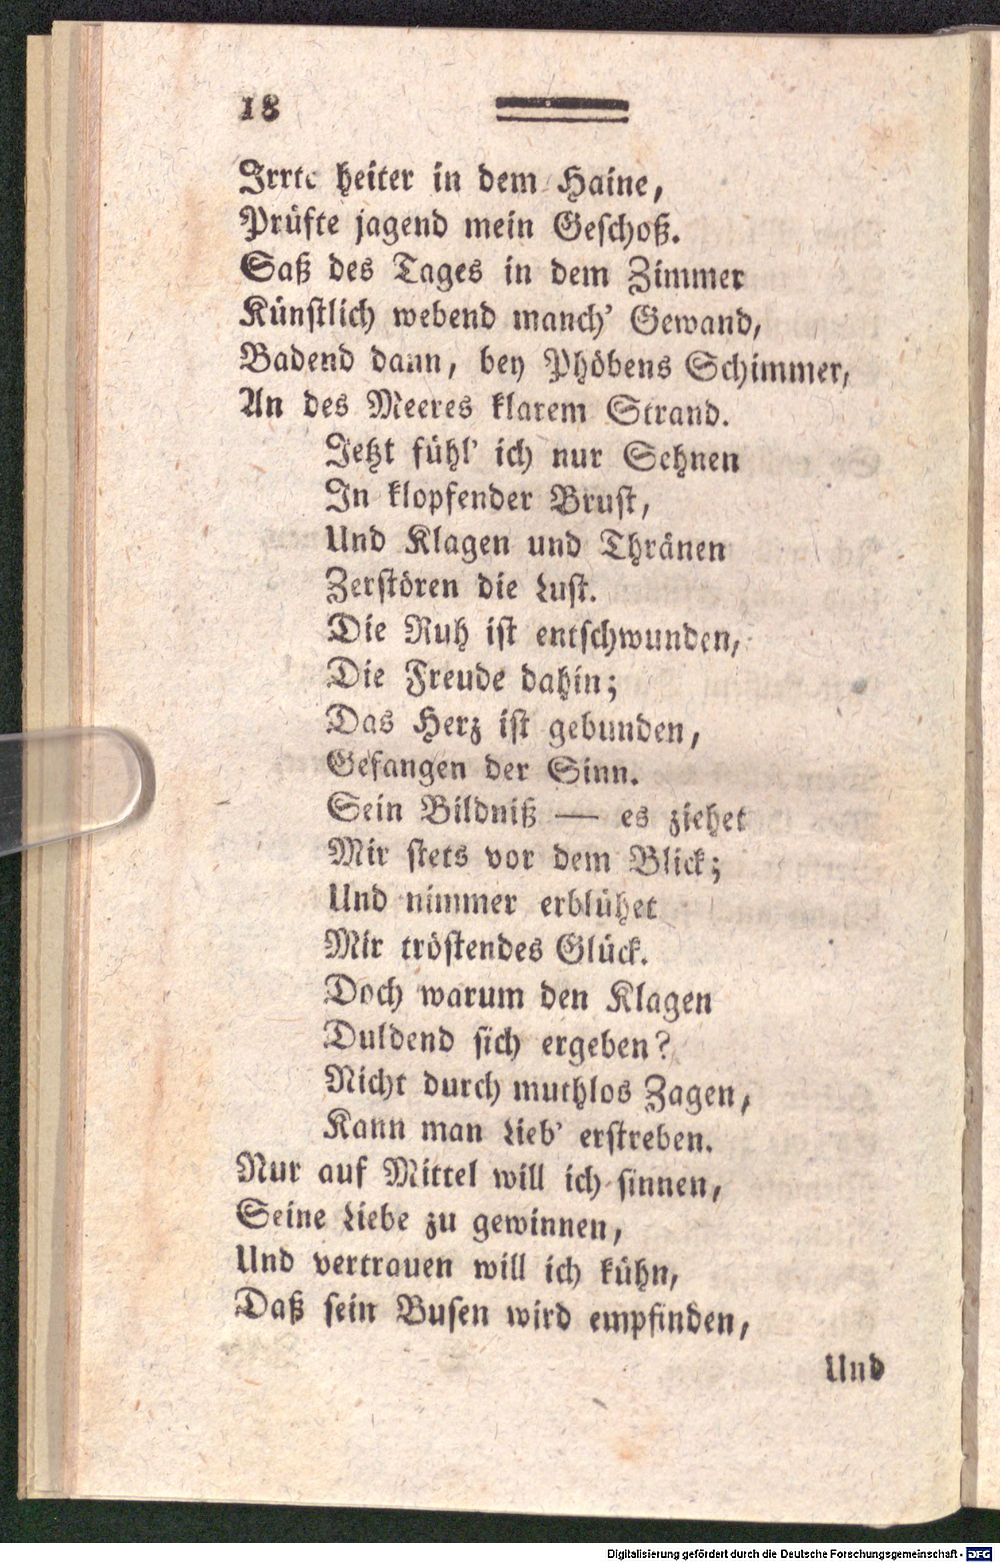 18
Irrte heiter in dem Haine,
Prüfte jagend mein Geschoß.
Saß des Tages in dem Zimmer
Künstlich webend manch' Gewand,
Badend dann, bey Phöbens Schimmer,
An des Meeres klarem Strand.
Jetzt fühl' ich nur Sehnen
In klopfender Brust,
Und Klagen und Thränen
Zerstören die Lust.
Die Ruh ist entschwunden,
Die Freude dahin;
Das Herz ist gebunden,
Gefangen der Sinn.
Sein Bildniß — es ziehet
Mir stets vor dem Blick;
Und nimmer erblühet
Mir tröstendes Glück.
Doch warum den Klagen
Duldend sich ergeben?
Nicht durch muthlos Zagen,
Kann man Lieb' erstreben.
Nur auf Mittel will ich sinnen,
Seine Liebe zu gewinnen,
Und vertrauen will ich kühn,
Daß sein Busen wird empfinden,
Und
Digitalisierung gefördert durch die Deutsche Forschungsgemeinschaft - DFG